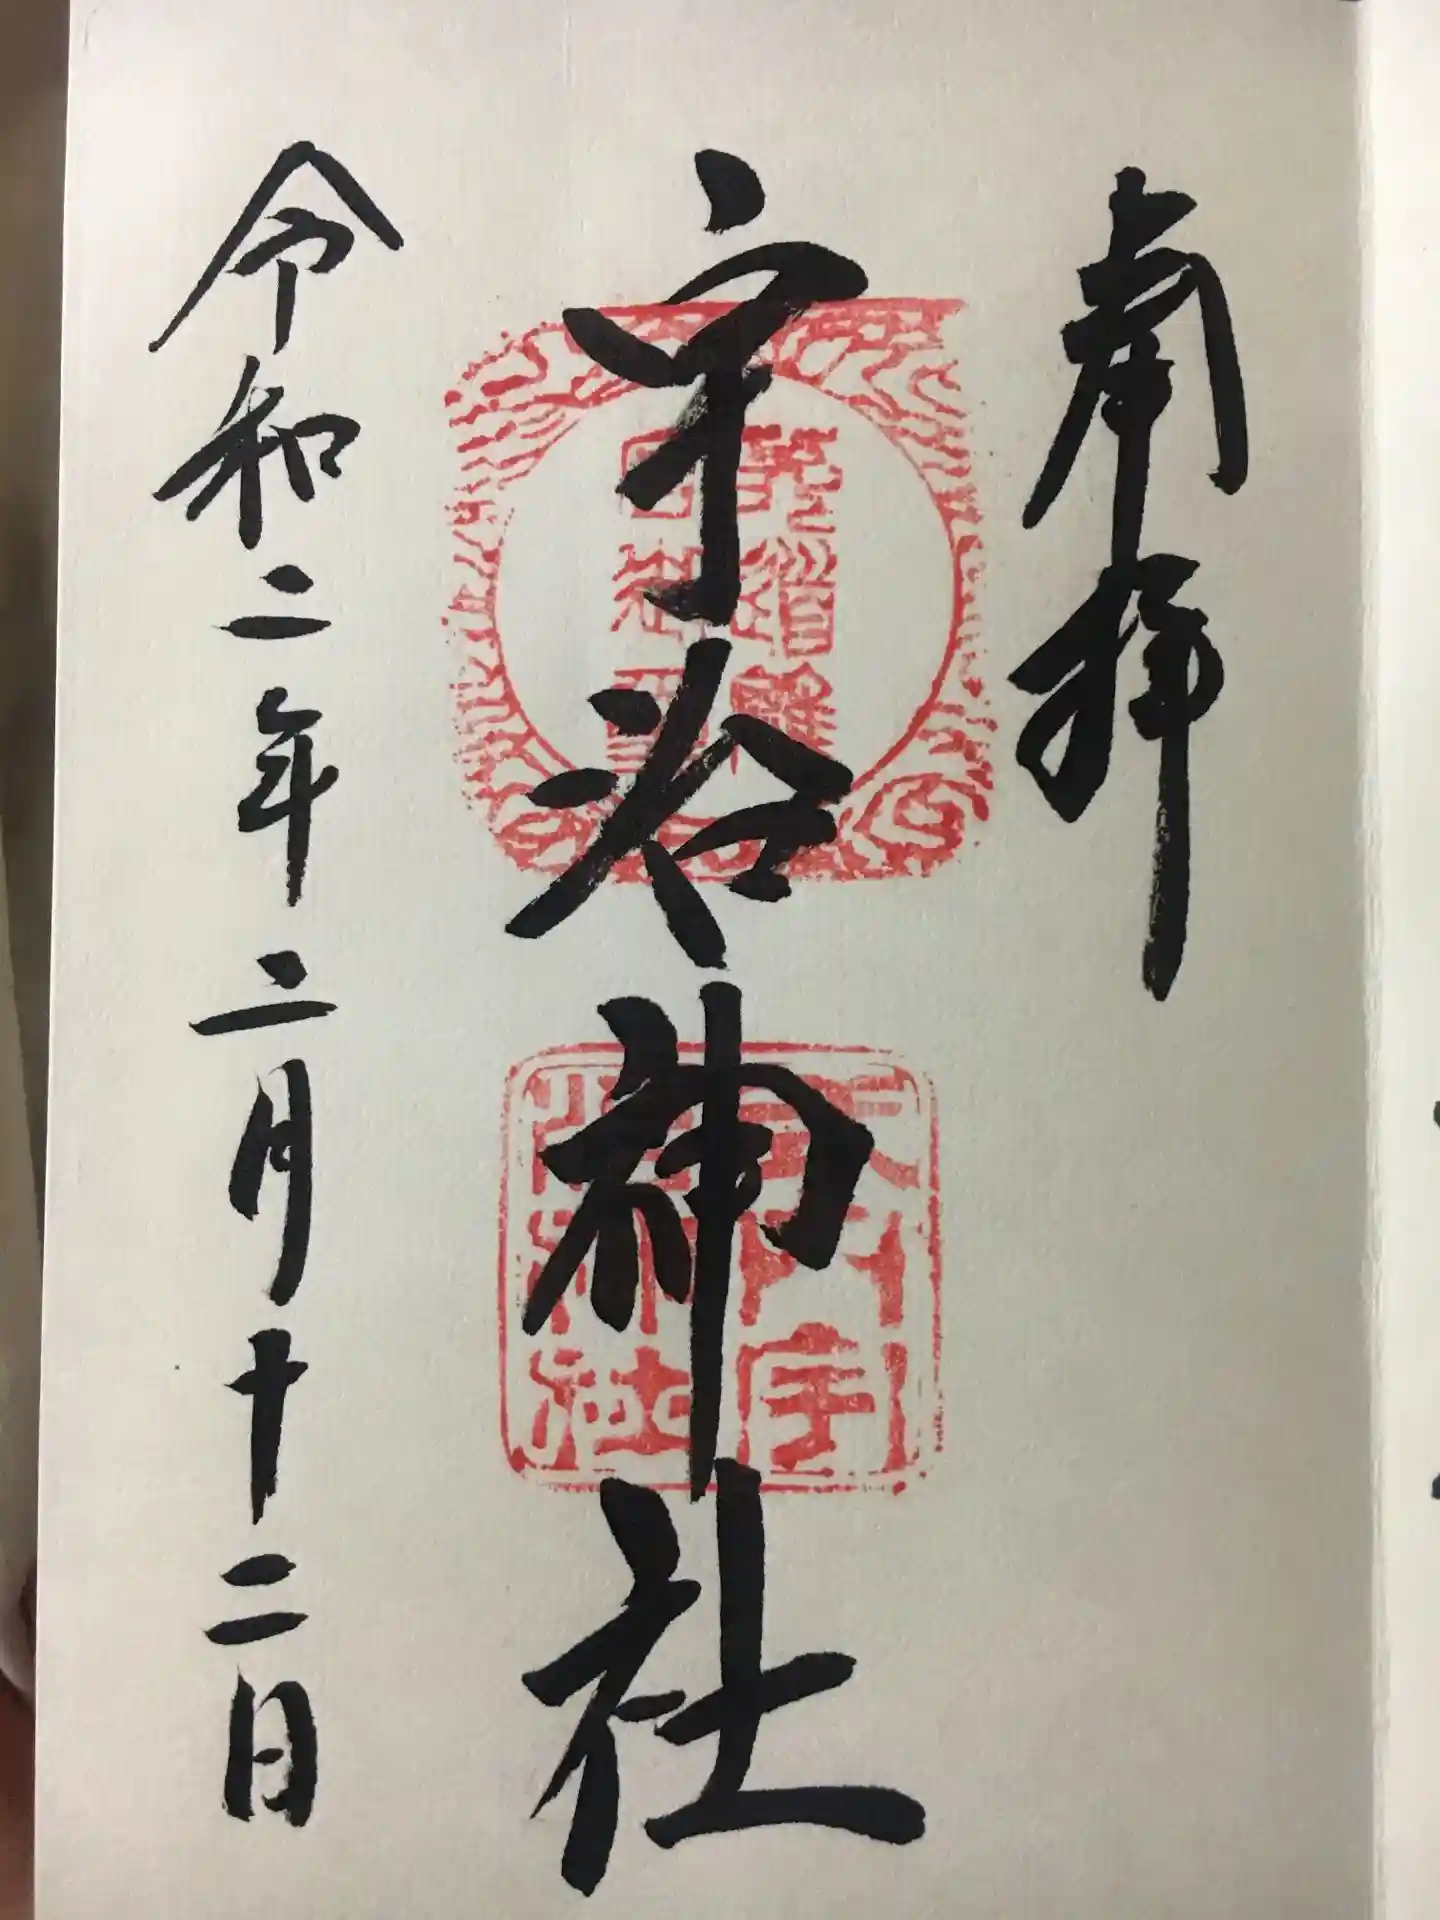 奉拝
宇治神社
令和二年二月十二日